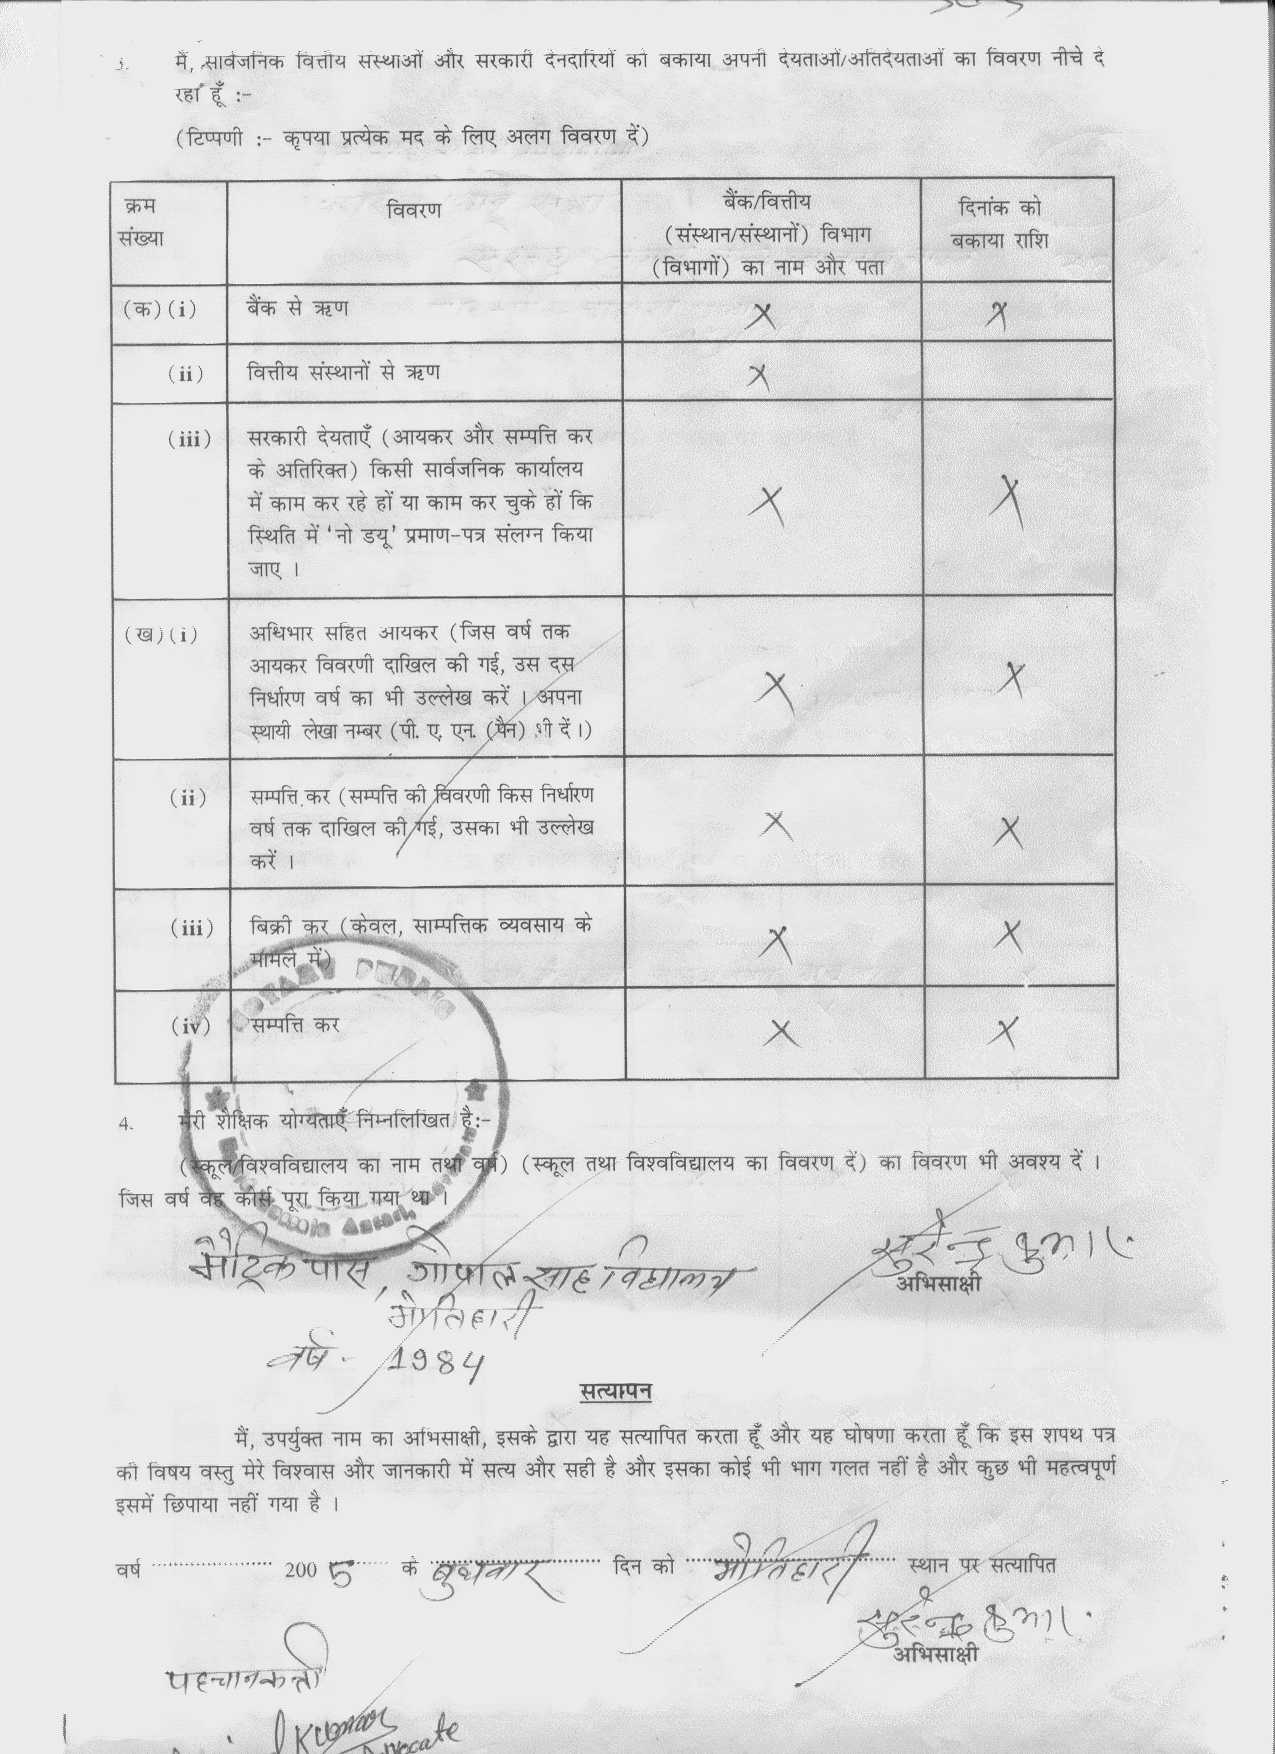 3. मैं, सार्वजनिक वित्तीय संस्थाओं और सरकारी देनदारियों को बकाया अपनी देयताओं/अतिदेयताओं का विवरण नीचे दे
रहा हूँ :-
(टिप्पणी :- कृपया प्रत्येक मद के लिए अलग विवरण दें)
क्रम
संख्या
विवरण
बैंक/वित्तीय
(संस्थान/संस्थानों) विभाग
(विभागों) का नाम और पता
दिनांक को
बकाया राशि
(क)(i) बैंक से ऋण X X
(ii) वित्तीय संस्थानों से ऋण X
(iii) सरकारी देयताएँ (आयकर और सम्पत्ति कर
के अतिरिक्त) किसी सार्वजनिक कार्यालय
में काम कर रहे हों या काम कर चुके हों कि
स्थिति में 'नो डयू' प्रमाण-पत्र संलग्न किया
जाए ।
X X
(ख)(i) अधिभार सहित आयकर (जिस वर्ष तक
आयकर विवरणी दाखिल की गई, उस दस
निर्धारण वर्ष का भी उल्लेख करें । अपना
स्थायी लेखा नम्बर (पी. ए. एन. (पैन) भी दें।)
X X
(ii) सम्पत्ति कर (सम्पत्ति की विवरणी किस निर्धारण
वर्ष तक दाखिल की गई, उसका भी उल्लेख
करें ।
X X
(iii) बिक्री कर (केवल, साम्पत्तिक व्यवसाय के
मामले में)
X X
(iv) सम्पत्ति कर X X
NOTARY PUBLIC
4. मेरी शैक्षिक योग्यताएँ निम्नलिखित है:-
(स्कूल/विश्वविद्यालय का नाम तथा वर्ष) (स्कूल तथा विश्वविद्यालय का विवरण दें) का विवरण भी अवश्य दें ।
जिस वर्ष वह कोर्स पूरा किया गया था ।
मैट्रिक पास, गोपाल साह विद्यालय
मोतिहारी
वर्ष - 1984
सुरेन्द्र कुमार
अभिसाक्षी
सत्यापन
मैं, उपर्युक्त नाम का अभिसाक्षी, इसके द्वारा यह सत्यापित करता हूँ और यह घोषणा करता हूँ कि इस शपथ पत्र
की विषय वस्तु मेरे विश्वास और जानकारी में सत्य और सही है और इसका कोई भी भाग गलत नहीं है और कुछ भी महत्वपूर्ण
इसमें छिपाया नहीं गया है ।
वर्ष ........ 200 5 के बुधवार दिन को मोतिहारी स्थान पर सत्यापित
सुरेन्द्र कुमार
अभिसाक्षी
पहचानकर्त्ता
Kumar
Advocate